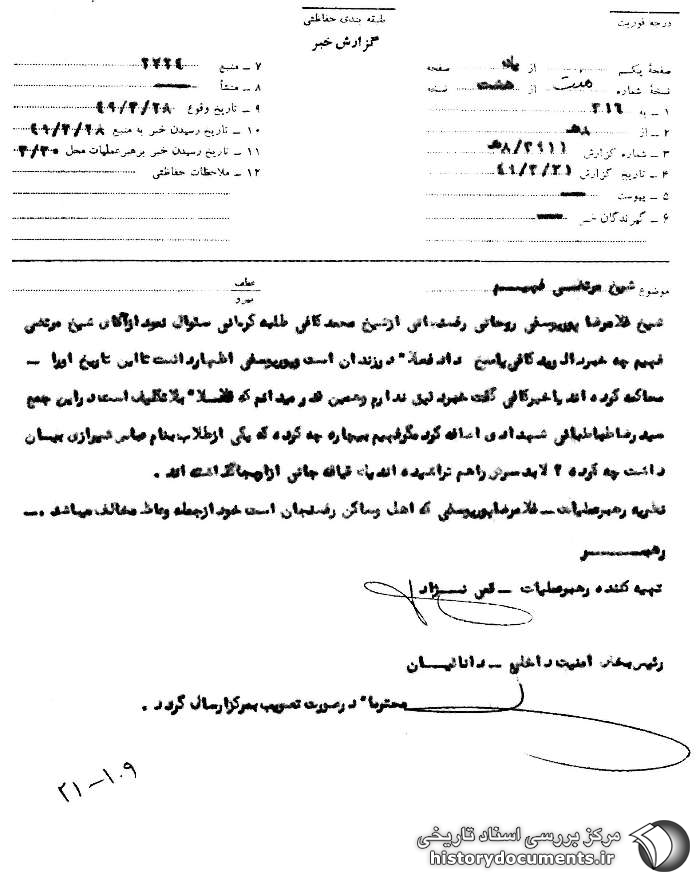 درجه فوریت
طبقه بندی حفاظتی
گزارش خبر
صفحهٔ یکم از یک صفحه
نسخهٔ شماره از هشت نسخه
۱ ـ به ۳۱۶
۲ ـ از ۸ﻫ
۳ ـ شماره گزارش ۸/۲۹۱۱ﻫ
۴ ـ تاریخ گزارش ۴۹/۳/۳۱
۵ ـ پیوست
۶ ـ گیرندگان خبر
۷ ـ منبع
۸ ـ منشأ
۹ ـ تاریخ وقوع ۴۹/۳/۲۸
۱۰ ـ تاریخ رسیدن خبر به منبع ۴۹/۳/۲۸
۱۱ ـ تاریخ رسیدن خبر برهبرعملیات محل ۳/۳۰
۱۲ ـ ملاحظات حفاظتی
موضوع شیخ مرتضی فهیم
عطف
پیرو
شیخ غلامرضا پوریوسفی روحانی رفسنجانی ازشیخ محمدکافی طلبه کرمانی سئوال نمود ازآقای شیخ مرتضی
فهیم چه خبرداریدکافی پاسخ داد فعلا" درزندان است وپوریوسفی اظهارداشت تااین تاریخ اورا ـ
محاکمه کرده اند یاخیرکافی گفت خبردقیق ندارم وهمین قدر میدانم که فعلا" بلاتکلیف است دراین جمع
سیدرضاطباطبائی شهدادی اضافه کرد مگرفهیم بیچاره چه کرده که یکی ازطلاب بنام صابر شیرازی بیان
داشت چه کرده ؟ لابد سرش راهم تراشیده اند یک قیافه جانی ازاوبجاگذاشته اند .
نظریه رهبرعملیات ـ غلامرضاپوریوسفی که اهل وساکن رفسنجان است خود ازجمله وعاظ مخالف میباشد . ـ
رهبر
تهیه کننده رهبرعملیات ـ نژاد
رئیس بخش امنیت داخلی ـ دانائیان
محترما" درصورت تصویب بمرکزارسال گردد .
۲۱-۱۰۹
مرکز بررسی اسناد تاریخی
historydocuments.ir